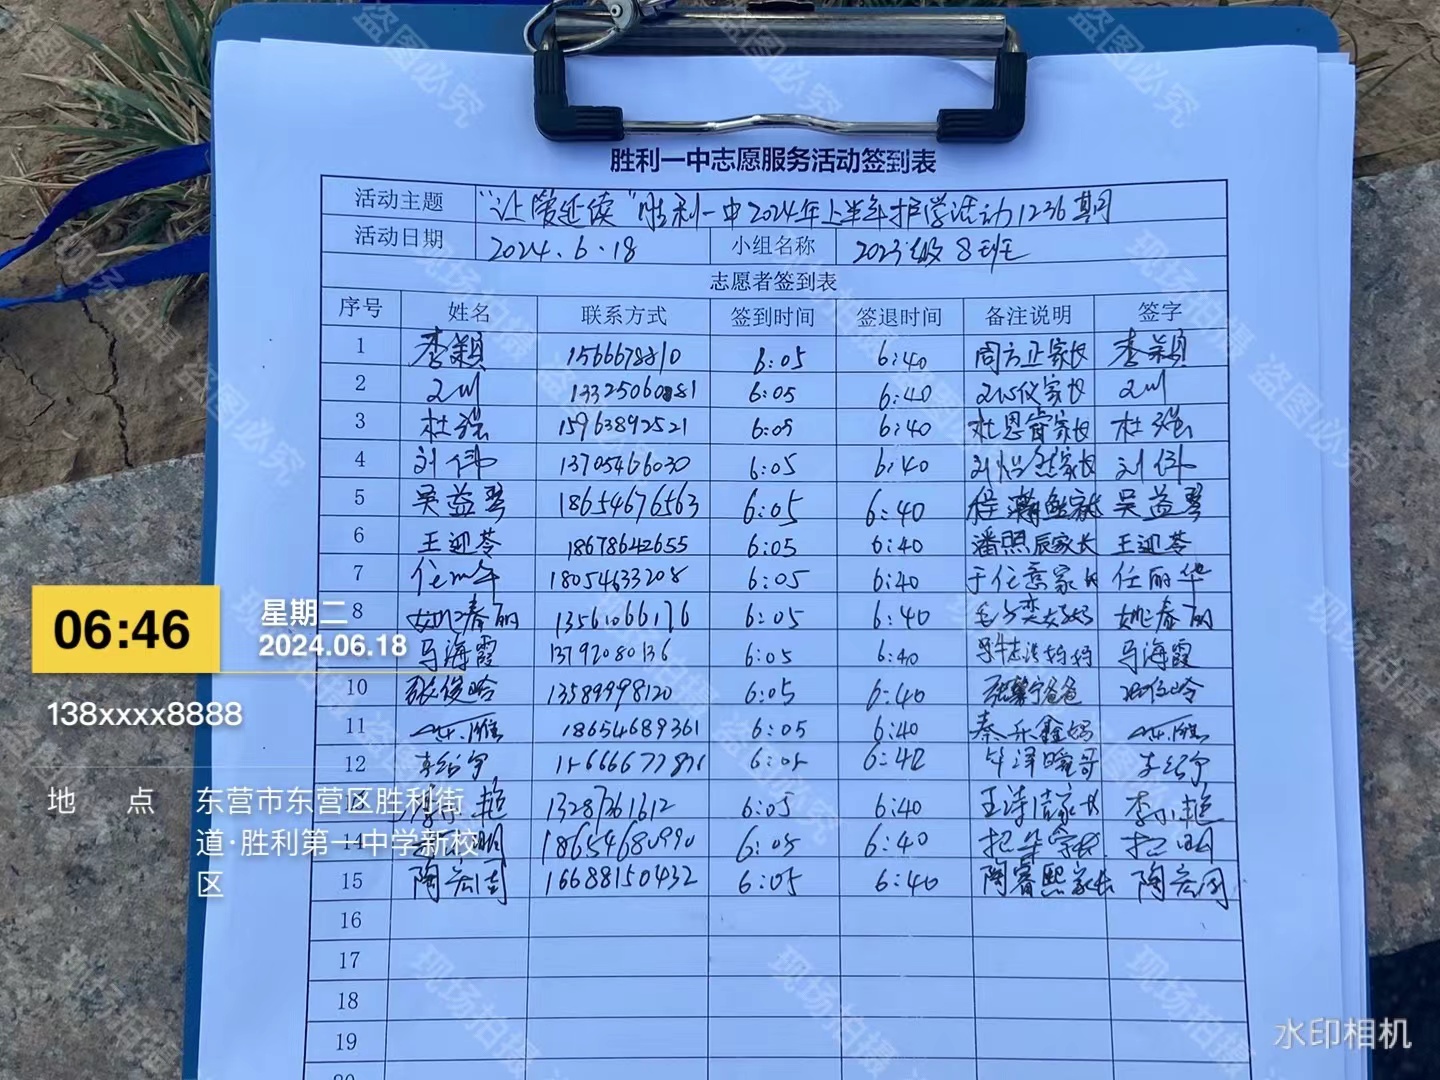 胜利一中志愿服务活动签到表
活动主题 "让爱延续"胜利一中2024年上半年护学活动1236期
活动日期 2024.6.18 小组名称 2023级8班
志愿者签到表
序号 姓名 联系方式 签到时间 签退时间 备注说明 签字
1 李颖 1566678810 6:05 6:40 周方正家长 李颖
2 6:05 6:40 家长
3 杜强 15963892521 6:05 6:40 杜恩睿家长 杜强
4 刘伟 13705466030 6:05 6:40 家长 刘伟
5 吴益琴 18654676563 6:05 6:40 程瀚 吴益琴
6 王迎苓 18678642655 6:05 6:40 潘熙辰家长 王迎苓
7 18054633208 6:05 6:40 家长 任丽华
8 姚春丽 13561066176 6:05 6:40 姚春丽
马海霞 13792080136 6:05 6:40 妈妈 马海霞
10 13589998120 6:05 6:40 爸爸
11 18654689361 6:05 6:40 秦乐鑫妈
12 6:05 6:42
13 13287361612 6:05 6:40 王诗洁家长 李小艳
14 明 18654680990 6:05 6:40 明
15 陶宏国 16688150432 6:05 6:40 陶睿熙家长 陶宏国
16
17
18
19
20
06:46
星期二
2024.06.18
138xxxx8888
地 点 东营市东营区胜利街
道·胜利第一中学新校
区
水印相机
现场拍摄 盗图必究